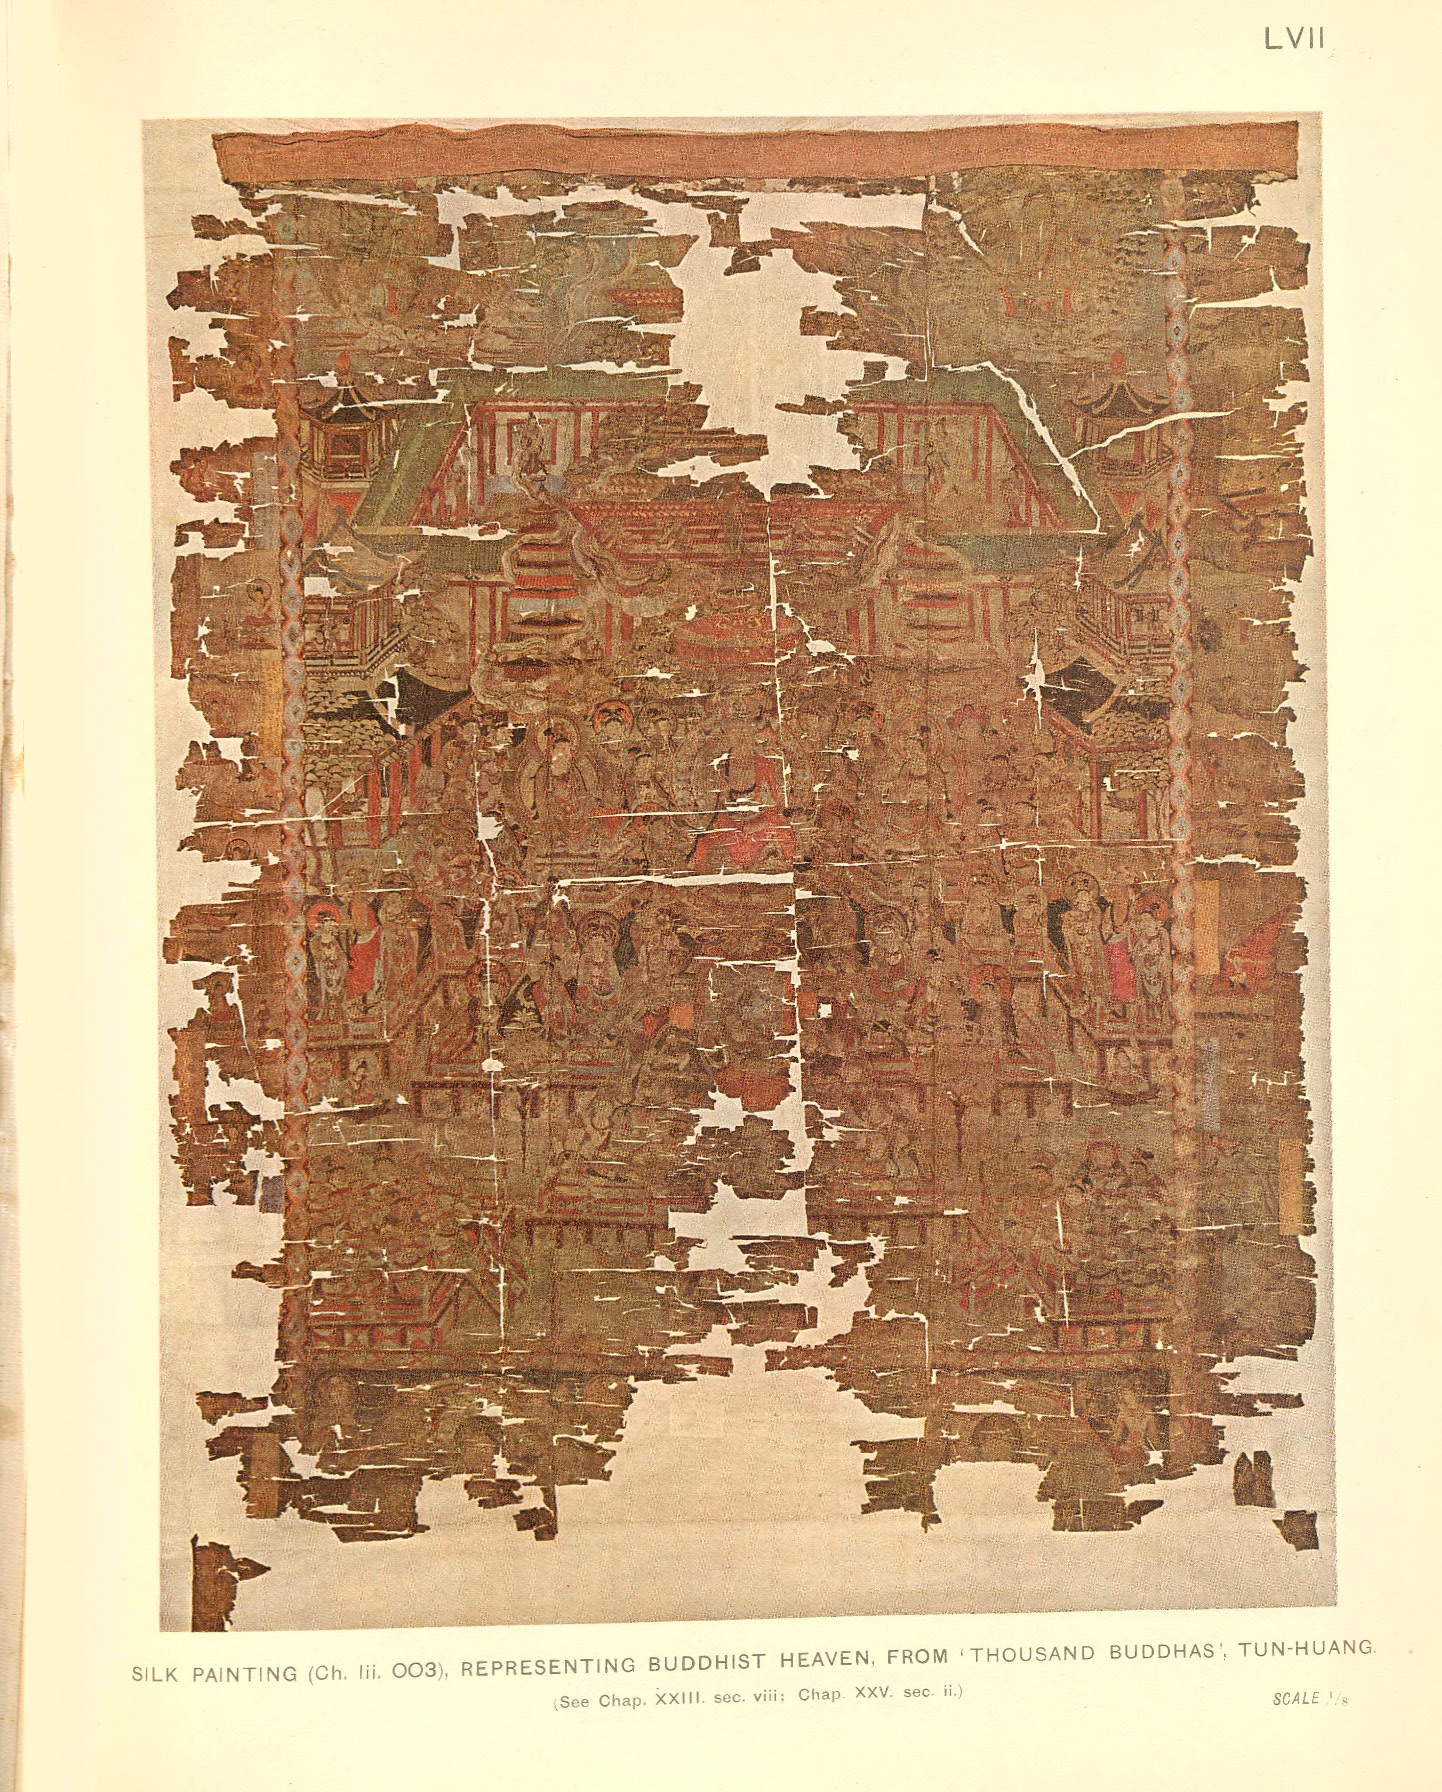 LVII
SILK PAINTING (Ch. lii. 003), REPRESENTING BUDDHIST HEAVEN, FROM 'THOUSAND BUDDHAS', TUN-HUANG.
(See Chap. XXIII. sec. viii; Chap. XXV. sec. ii.)
SCALE 1/8